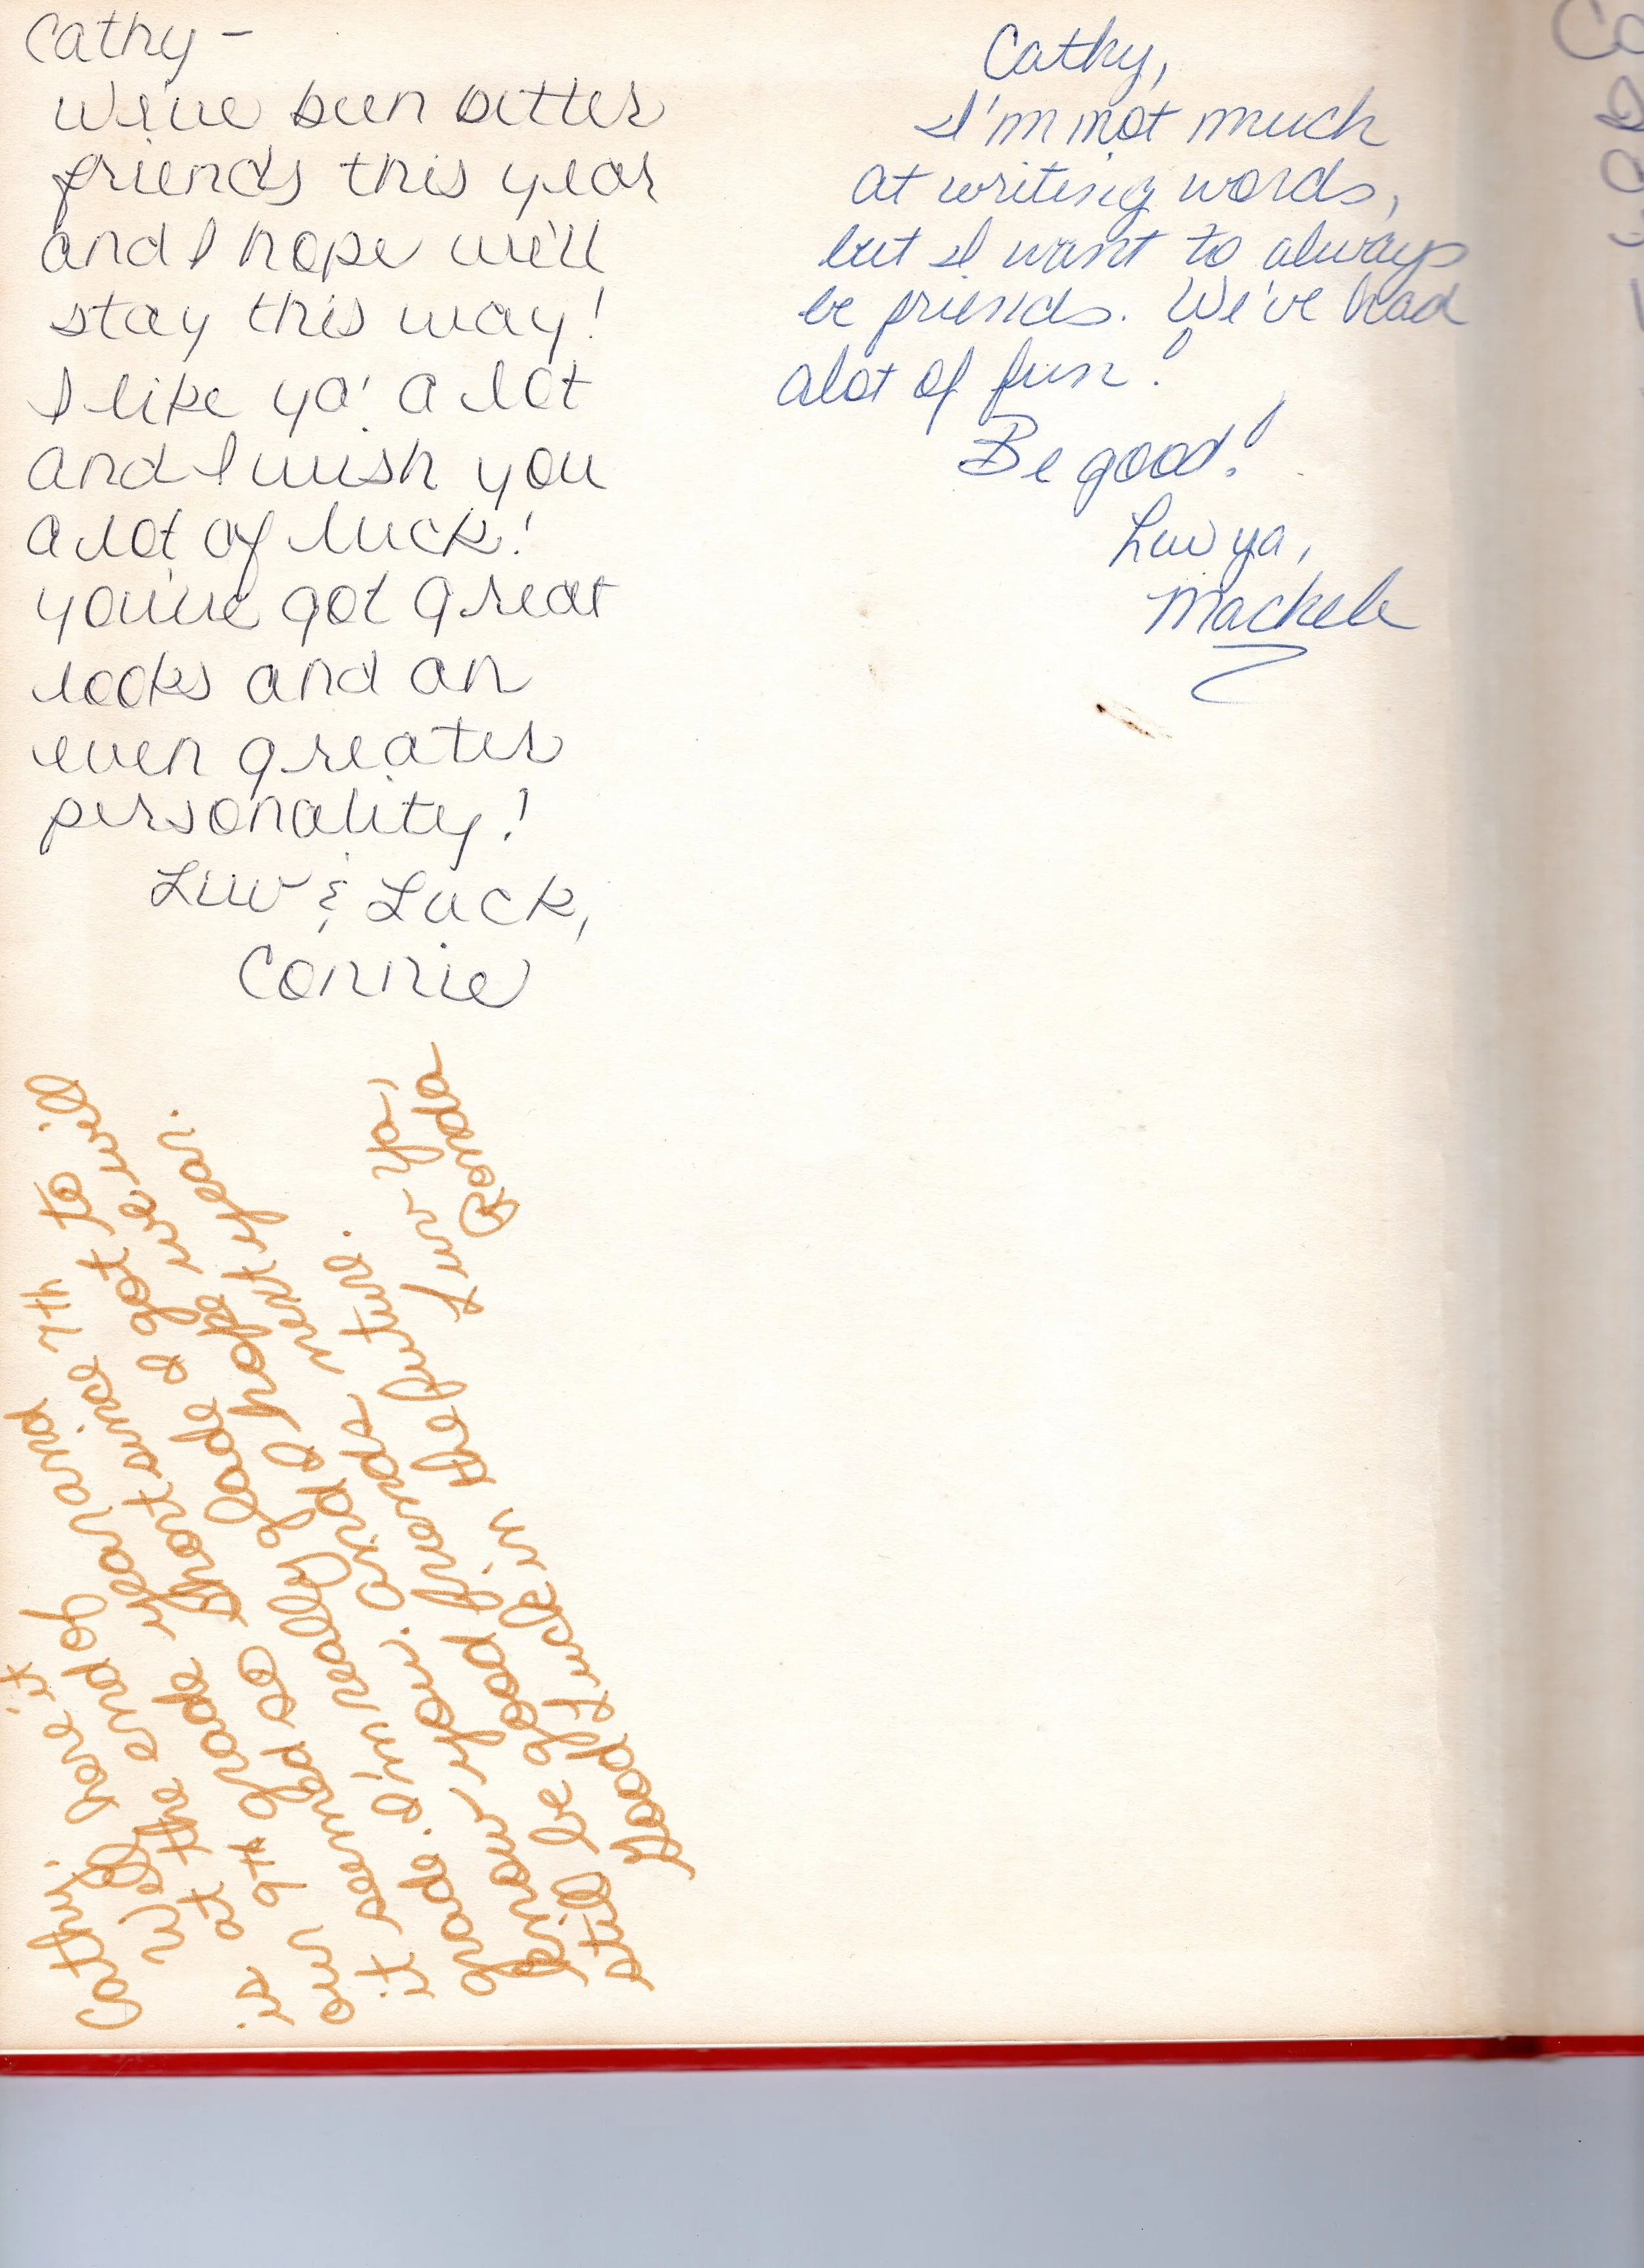 Cathy -
We've been better
friends this year
and I hope we'll
stay this way!
I like ya' a lot
and I wish you
a lot of luck!
you've got great
looks and an
even greater
personality!
Luv & Luck,
Connie
Cathy,
I'm not much
at writing words,
but I want to always
be friends. We've had
alot of fun!
Be good!
Luv ya,
Mackele
Cathy,
Well here it
is at the end of
our 9th grade year and
it seemed so short since 7th
grade. I'm really glade I got to
know you. and I hope we will
still be good friends next year.
Good Luck in the future.
Luv Ya,
Ronda
Ca